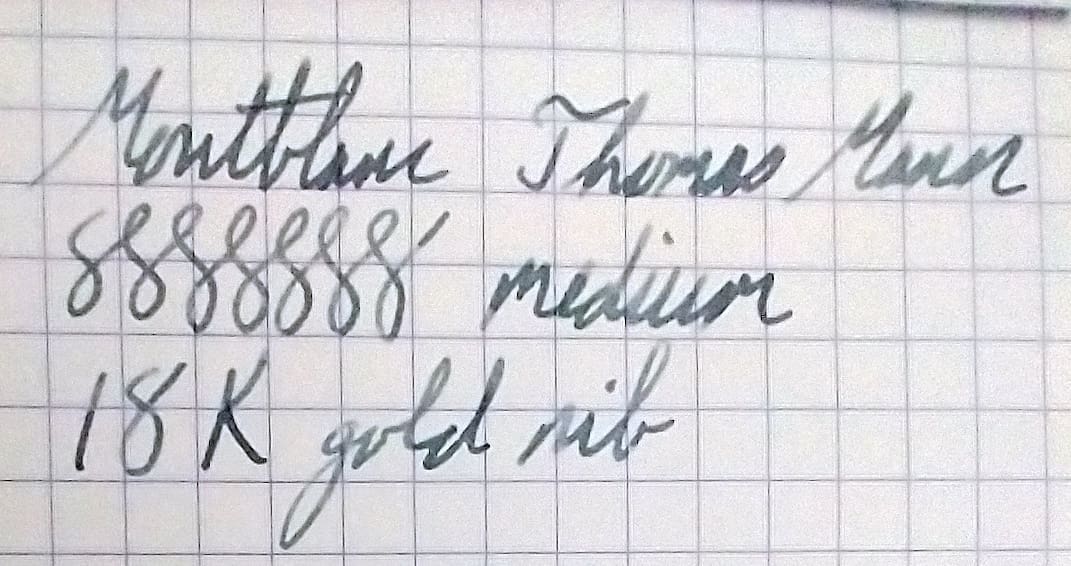 Montblanc Thomas Mann
8888888 medium
18K gold nib